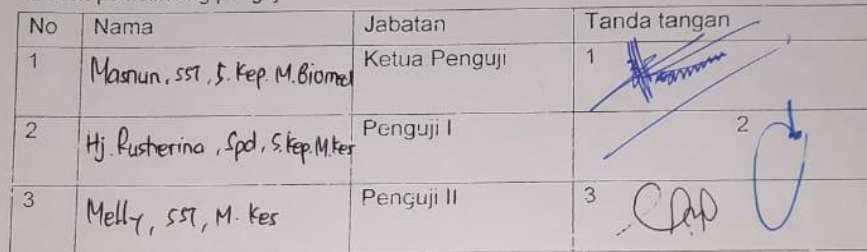 No Nama Jabatan Tanda tangan
1 Masnun, SST, S. Kep. M. Biomed Ketua Penguji 1
2 Hj. Rusherina, Spd, S. Kep. M. Kes Penguji I 2
3 Melly, SST, M. Kes Penguji II 3